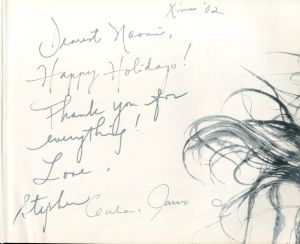 Xmas '02
Dearest Naomi,
Happy Holidays!
Thank you for
everything!
Love,
Stephen